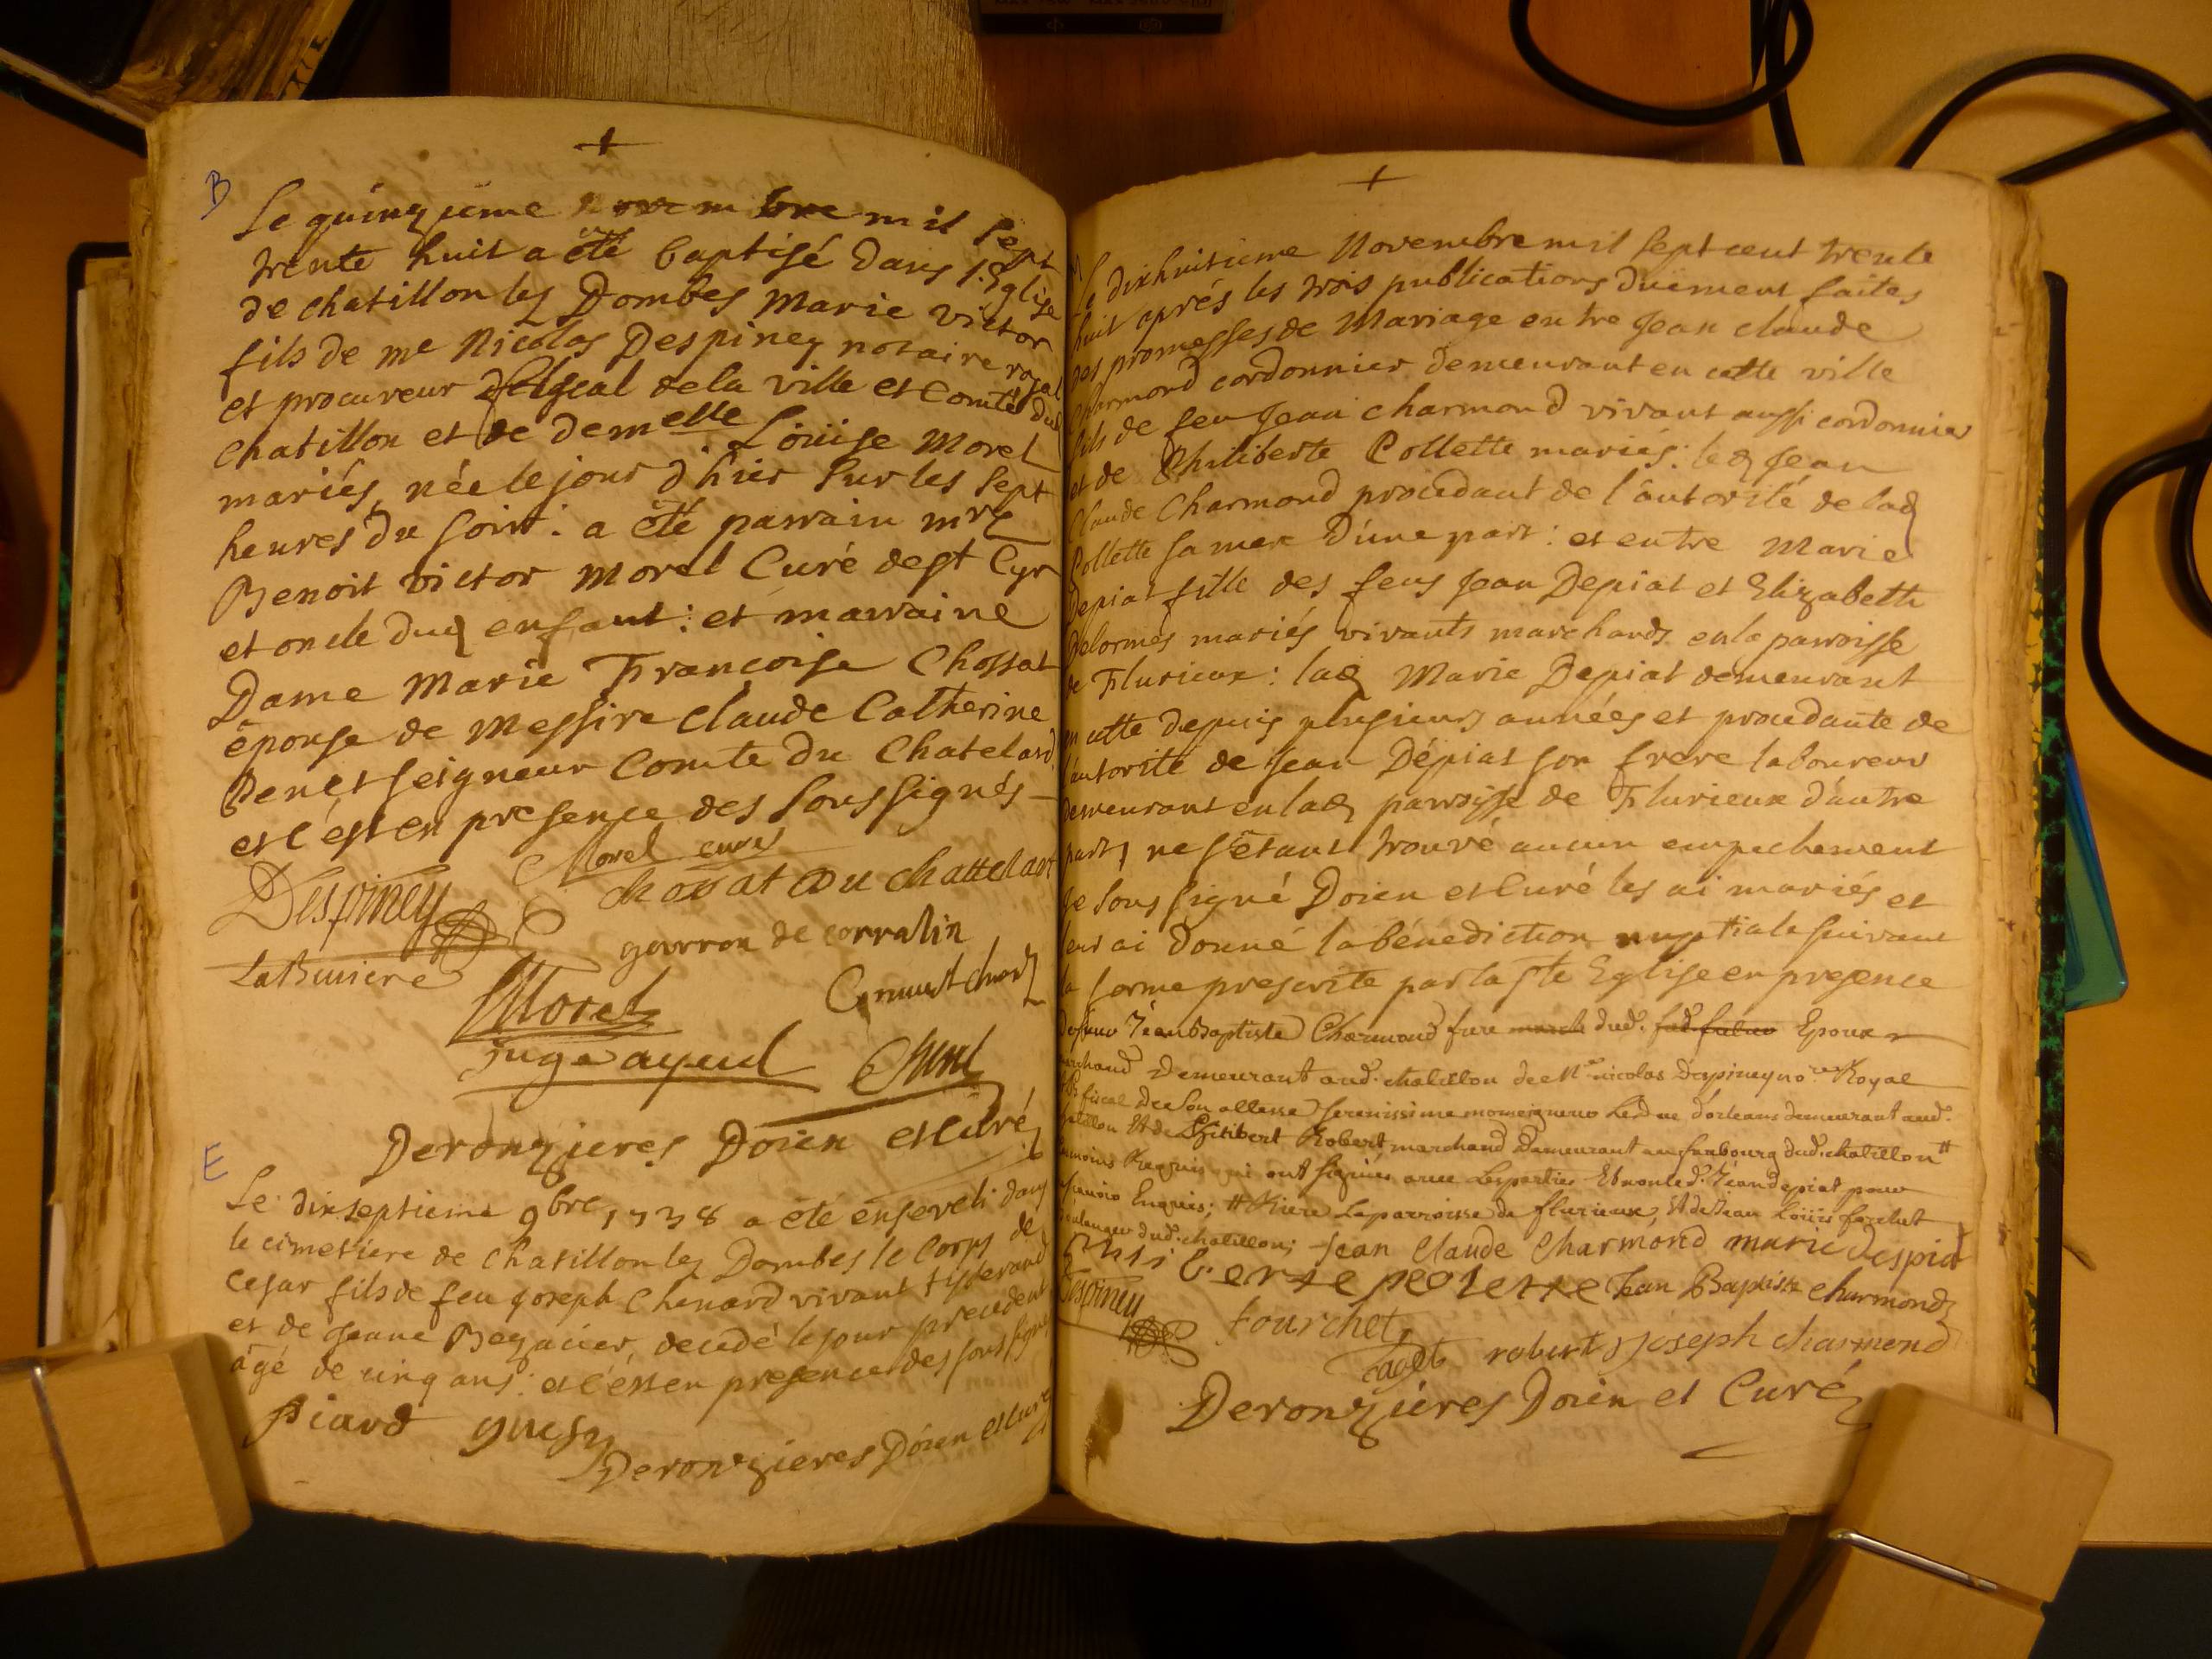 B
Le quinzieme novembre mil sept
trente huit a été baptisé dans l'Eglise
de chatillon les Dombes Marie victor
fils de me Nicolas Despiney notaire royal
et procureur fiscal de la ville et Comté dud
Chatillon et de demelle Loüise Morel
mariés, née le jour d'hier sur les sept
heures du soir : a été parrain mre
Benoit victor Morel Curé de st Cyr
et oncle dud enfant : et marraine
Dame Marie Francoise Chossat
épouse de Messire Claude Catherine
Denet seigneur Comte du Chatelard
et c'est en presence des soussignés
Morel curé
Despiney
chossat du chattelart
garron de corralin
LaBuniere
Morel
juge ayeul
Deronzieres Doien et Curé
E
Le dixseptieme 9bre 1738 a été enseveli dans
le cimetiere de Chatillon les Dombes le Corps de
Cesar fils de feu Joseph Chenard vivant tisserand
et de Jeane decedé le jour precedent
âgé de cinq ans : et c'est en presence des soussignés
Piard guesy
Deronzieres Doien et curé
Le dixhuitieme Novembre mil sept cent trente
huit aprés les trois publications düement faites
des promesses de Mariage entre Jean claude
Charmond cordonnier demeurant en cette ville
fils de feu Jean charmond vivant aussi cordonnier
et de Philiberte Collette mariés : led Jean
Claude Charmond procedant de l'autorité de lad
Collette sa mere d'une part : et entre Marie
Depiat fille des feus Jean Depiat et Elizabeth
Delormes mariés vivants marchards en la parroisse
de Flurieux : lad Marie Depiat demeurant
en cette depuis plusieurs années et procedante de
l'autorité de Jean Dépiat son frere laboureur
demeurant en lad parroisse de Flurieux d'autre
part, ne s'étant trouvé aucun empechement
Je sous signé Doien et Curé les ai mariés et
leur ai donné la bénediction nuptiale suivant
la forme prescrite par la ste Eglise en presence
de Jean Baptiste Charmond frere dud. Epoux
marchand Demeurant aud. chatillon de Me nicolas Despiney nore Royal
fiscal de son altesse serenissime monseigneur Le duc d'orleans demeurant aud.
chatillon Et de Philibert Robert marchand Demeurant au faubourg dud. chatillon #
temoins Requis qui ont signés avec Les parties Et non led. Jean depiat pour
Enquis; # Riere La parroisse de flurieux, Et de Jean Loüis forchet
boulanger dud. chatillon; Jean Claude Charmond marie despiat
Philiberte Jean Baptiste charmond
Despiney
fourchet
robert joseph charmond
Deronzieres Doien et Curé